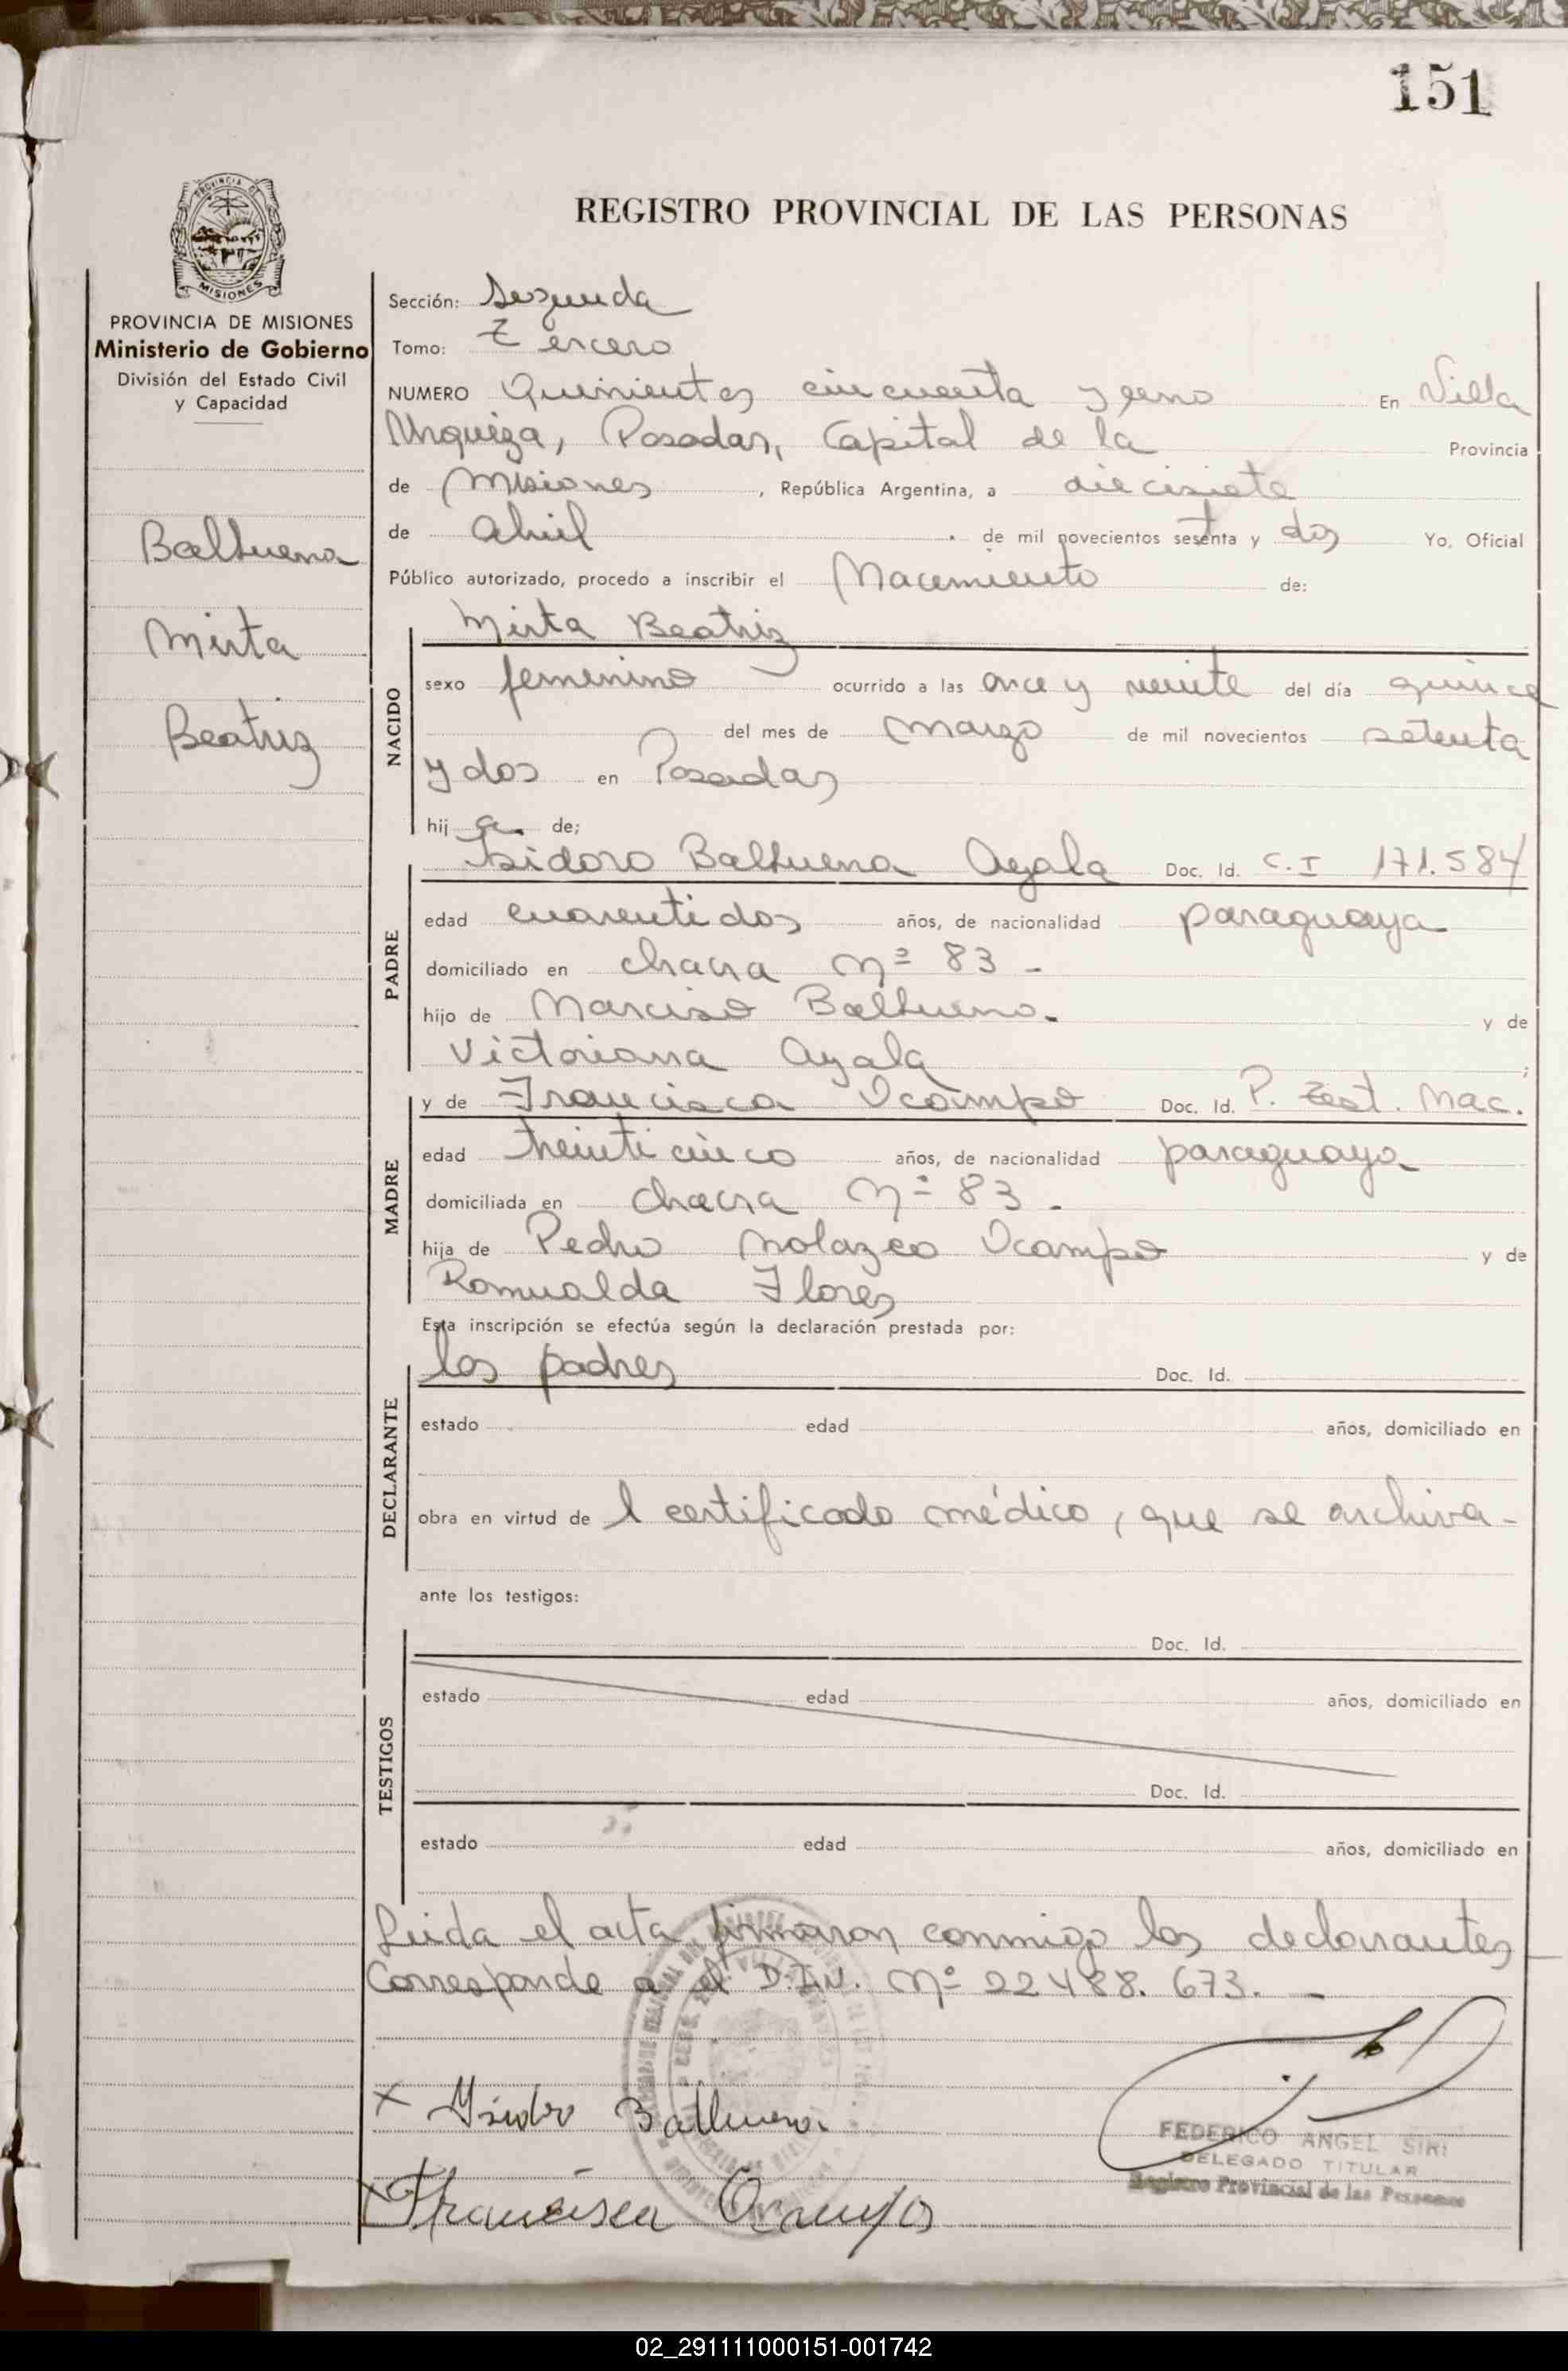 151
REGISTRO PROVINCIAL DE LAS PERSONAS
PROVINCIA DE MISIONES
Ministerio de Gobierno
División del Estado Civil
y Capacidad
Balbuena
Mirta
Beatriz
Sección: Segunda
Tomo: Tercero
NUMERO Quinientos cincuenta y uno En Villa
Urquiza, Posadas, Capital de la Provincia
de Misiones, República Argentina, a diecisiete
de abril de mil novecientos setenta y dos Yo, Oficial
Público autorizado, procedo a inscribir el Nacimiento de:
NACIDO
Mirta Beatriz
sexo femenino ocurrido a las once y veinte del día quince
del mes de marzo de mil novecientos setenta
y dos en Posadas
hija de;
PADRE
Isidoro Balbuena Ayala Doc. Id. C.I 171.584
edad cuarentidos años, de nacionalidad paraguaya
domiciliado en chacra Nº 83 -
hijo de Narciso Balbuena. y de
Victoriana Ayala;
MADRE
y de Francisca Ocampo Doc. Id. P. Test. Nac.
edad treinticinco años, de nacionalidad paraguaya
domiciliada en chacra Nº 83 -
hija de Pedro Nolazco Ocampo y de
Romualda Flores
Esta inscripción se efectúa según la declaración prestada por:
DECLARANTE
los padres Doc. Id.
estado edad años, domiciliado en
obra en virtud de l certificado médico, que se archiva-
ante los testigos:
TESTIGOS
Doc. Id.
estado edad años, domiciliado en
Doc. Id.
estado edad años, domiciliado en
Leida el acta, firmaron conmigo los declarantes
Corresponde a el D.I.N. Nº 22488.673. -
x Isidro Balbuena
x Francisca Ocampo
FEDERICO ANGEL SIRI
DELEGADO TITULAR
Registro Provincial de las Personas
02_291111000151-001742